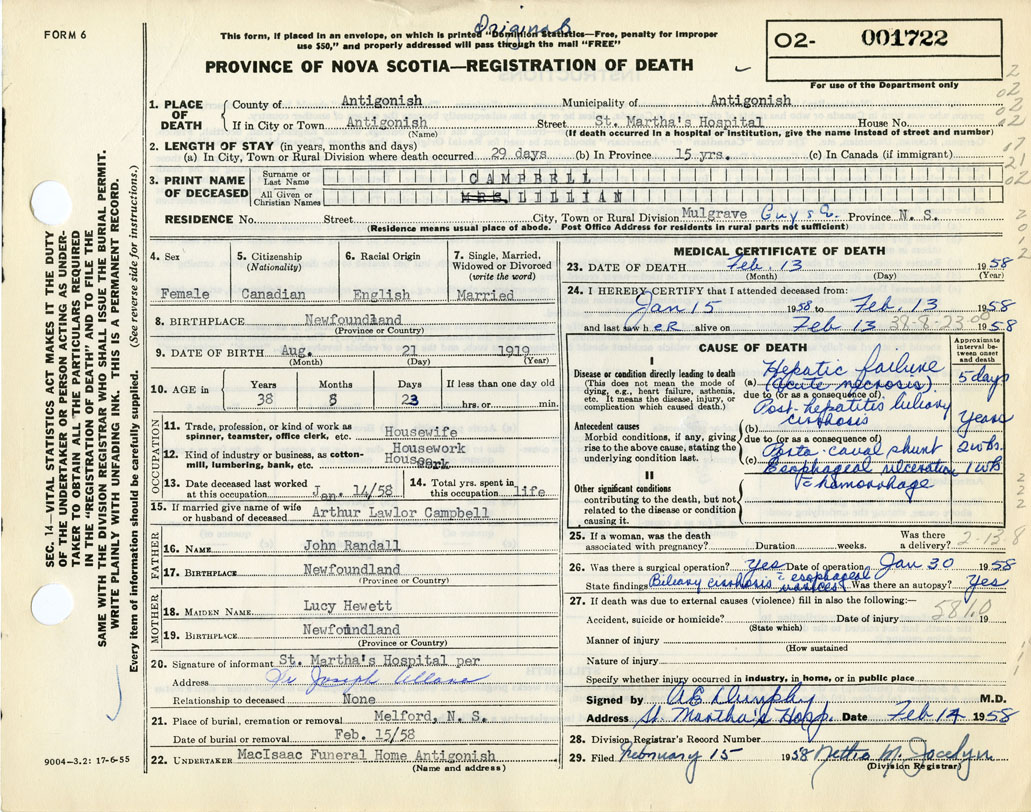 FORM 6
Original
This form, if placed in an envelope, on which is printed "Dominion Statistics—Free, penalty for improper
use $50," and properly addressed will pass through the mail "FREE"
02- 001722
For use of the Department only
PROVINCE OF NOVA SCOTIA—REGISTRATION OF DEATH
1. PLACE OF DEATH
County of Antigonish Municipality of Antigonish
If in City or Town Antigonish Street St. Martha's Hospital House No.
(Name) (If death occurred in a hospital or institution, give the name instead of street and number)
2. LENGTH OF STAY (in years, months and days)
(a) In City, Town or Rural Division where death occurred 29 days (b) In Province 15 yrs. (c) In Canada (if immigrant)
3. PRINT NAME OF DECEASED
Surname or Last Name CAMPBELL
All Given or Christian Names MRS. LILLIAN
RESIDENCE No. Street City, Town or Rural Division Mulgrave Guys Co. Province N. S.
(Residence means usual place of abode. Post Office Address for residents in rural parts not sufficient)
4. Sex Female
5. Citizenship (Nationality) Canadian
6. Racial Origin English
7. Single, Married, Widowed or Divorced (write the word) Married
8. BIRTHPLACE Newfoundland
(Province or Country)
9. DATE OF BIRTH Aug. 21 1919
(Month) (Day) (Year)
10. AGE in Years 38 Months 5 Days 23 If less than one day old hrs. or min.
OCCUPATION
11. Trade, profession, or kind of work as spinner, teamster, office clerk, etc. Housewife
12. Kind of industry or business, as cotton-mill, lumbering, bank, etc. Housework
Housework
13. Date deceased last worked at this occupation Jan. 14/58
14. Total yrs. spent in this occupation life
15. If married give name of wife or husband of deceased Arthur Lawlor Campbell
FATHER
16. NAME John Randall
17. BIRTHPLACE Newfoundland
(Province or Country)
MOTHER
18. MAIDEN NAME Lucy Hewett
19. BIRTHPLACE Newfoundland
(Province or Country)
20. Signature of informant St. Martha's Hospital per
Address Sr Joseph
Relationship to deceased None
21. Place of burial, cremation or removal Melford, N. S.
Date of burial or removal Feb. 15/58
22. UNDERTAKER MacIsaac Funeral Home Antigonish
(Name and address)
MEDICAL CERTIFICATE OF DEATH
23. DATE OF DEATH Feb. 13 1958
(Month) (Day) (Year)
24. I HEREBY CERTIFY that I attended deceased from:
Jan 15 1958 to Feb. 13 1958
and last saw her alive on Feb 13 1958
38-8-23
CAUSE OF DEATH
Approximate interval between onset and death
I
Disease or condition directly leading to death
(This does not mean the mode of dying, e.g., heart failure, asthenia, etc. It means the disease, injury, or complication which caused death.)
(a) Hepatic failure (acute necrosis) 5 days
due to (or as a consequence of)
Antecedent causes
Morbid conditions, if any, giving rise to the above cause, stating the underlying condition last.
(b) Post-hepatitis biliary cirrhosis Years
due to (or as a consequence of)
(c) Porta-caval shunt 2 wks.
II
Other significant conditions
contributing to the death, but not related to the disease or condition causing it.
Esophageal ulceration c hemorrhage 1 wk
25. If a woman, was the death associated with pregnancy? Duration weeks. Was there a delivery?
2-13-8
26. Was there a surgical operation? Yes Date of operation Jan 30 1958
State findings Biliary cirrhosis c esophageal varices Was there an autopsy? Yes
27. If death was due to external causes (violence) fill in also the following:—
5810
Accident, suicide or homicide? Date of injury 19
(State which)
Manner of injury
(How sustained
Nature of injury
Specify whether injury occurred in industry, in home, or in public place
Signed by A E Dunphy M.D.
Address St. Martha's Hosp. Date Feb 14 1958
28. Division Registrar's Record Number
29. Filed February 15 1958 Nettie M. Jocelyn
(Division Registrar)
SEC. 14—VITAL STATISTICS ACT MAKES IT THE DUTY
OF THE UNDERTAKER OR PERSON ACTING AS UNDER-
TAKER TO OBTAIN ALL THE PARTICULARS REQUIRED
IN THE "REGISTRATION OF DEATH" AND TO FILE THE
SAME WITH THE DIVISION REGISTRAR WHO SHALL ISSUE THE BURIAL PERMIT.
WRITE PLAINLY WITH UNFADING INK. THIS IS A PERMANENT RECORD.
Every item of information should be carefully supplied. (See reverse side for instructions.)
9004-3.2: 17-6-55